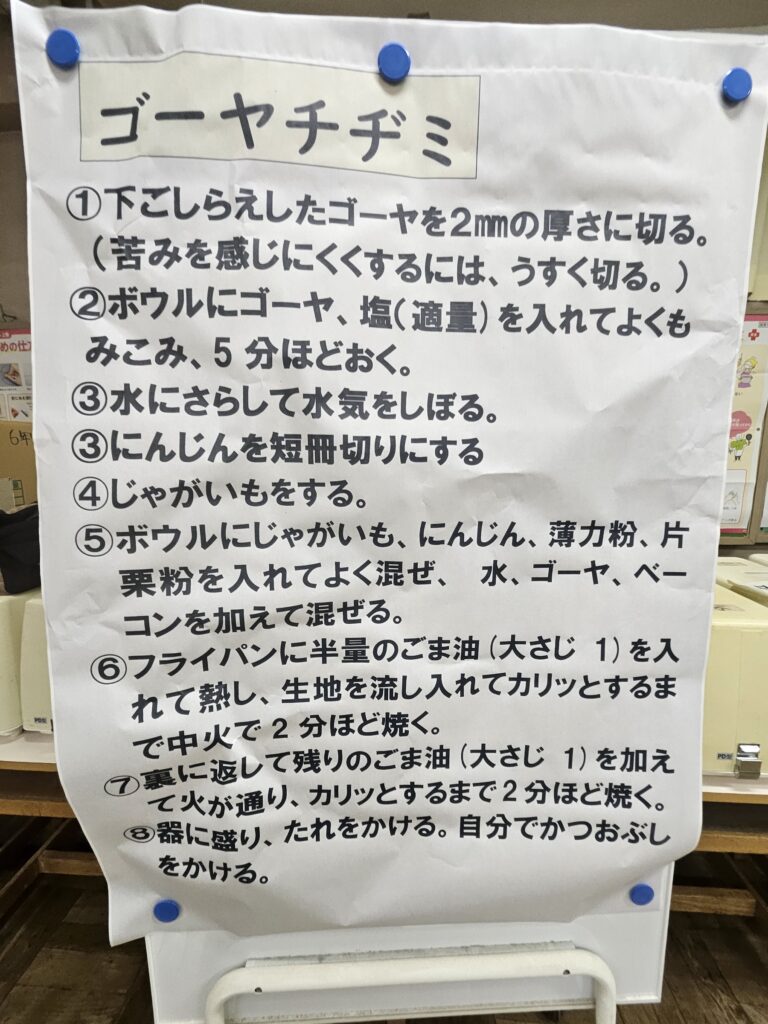 ゴーヤチヂミ
①下ごしらえしたゴーヤを2㎜の厚さに切る。
（苦みを感じにくくするには、うすく切る。）
②ボウルにゴーヤ、塩（適量）を入れてよくも
みこみ、5分ほどおく。
③水にさらして水気をしぼる。
③にんじんを短冊切りにする
④じゃがいもをする。
⑤ボウルにじゃがいも、にんじん、薄力粉、片
栗粉を入れてよく混ぜ、 水、ゴーヤ、ベー
コンを加えて混ぜる。
⑥フライパンに半量のごま油（大さじ 1）を入
れて熱し、生地を流し入れてカリッとするま
で中火で2分ほど焼く。
⑦裏に返して残りのごま油（大さじ 1）を加え
て火が通り、カリッとするまで2分ほど焼く。
⑧器に盛り、たれをかける。自分でかつおぶし
をかける。
めの仕
6年